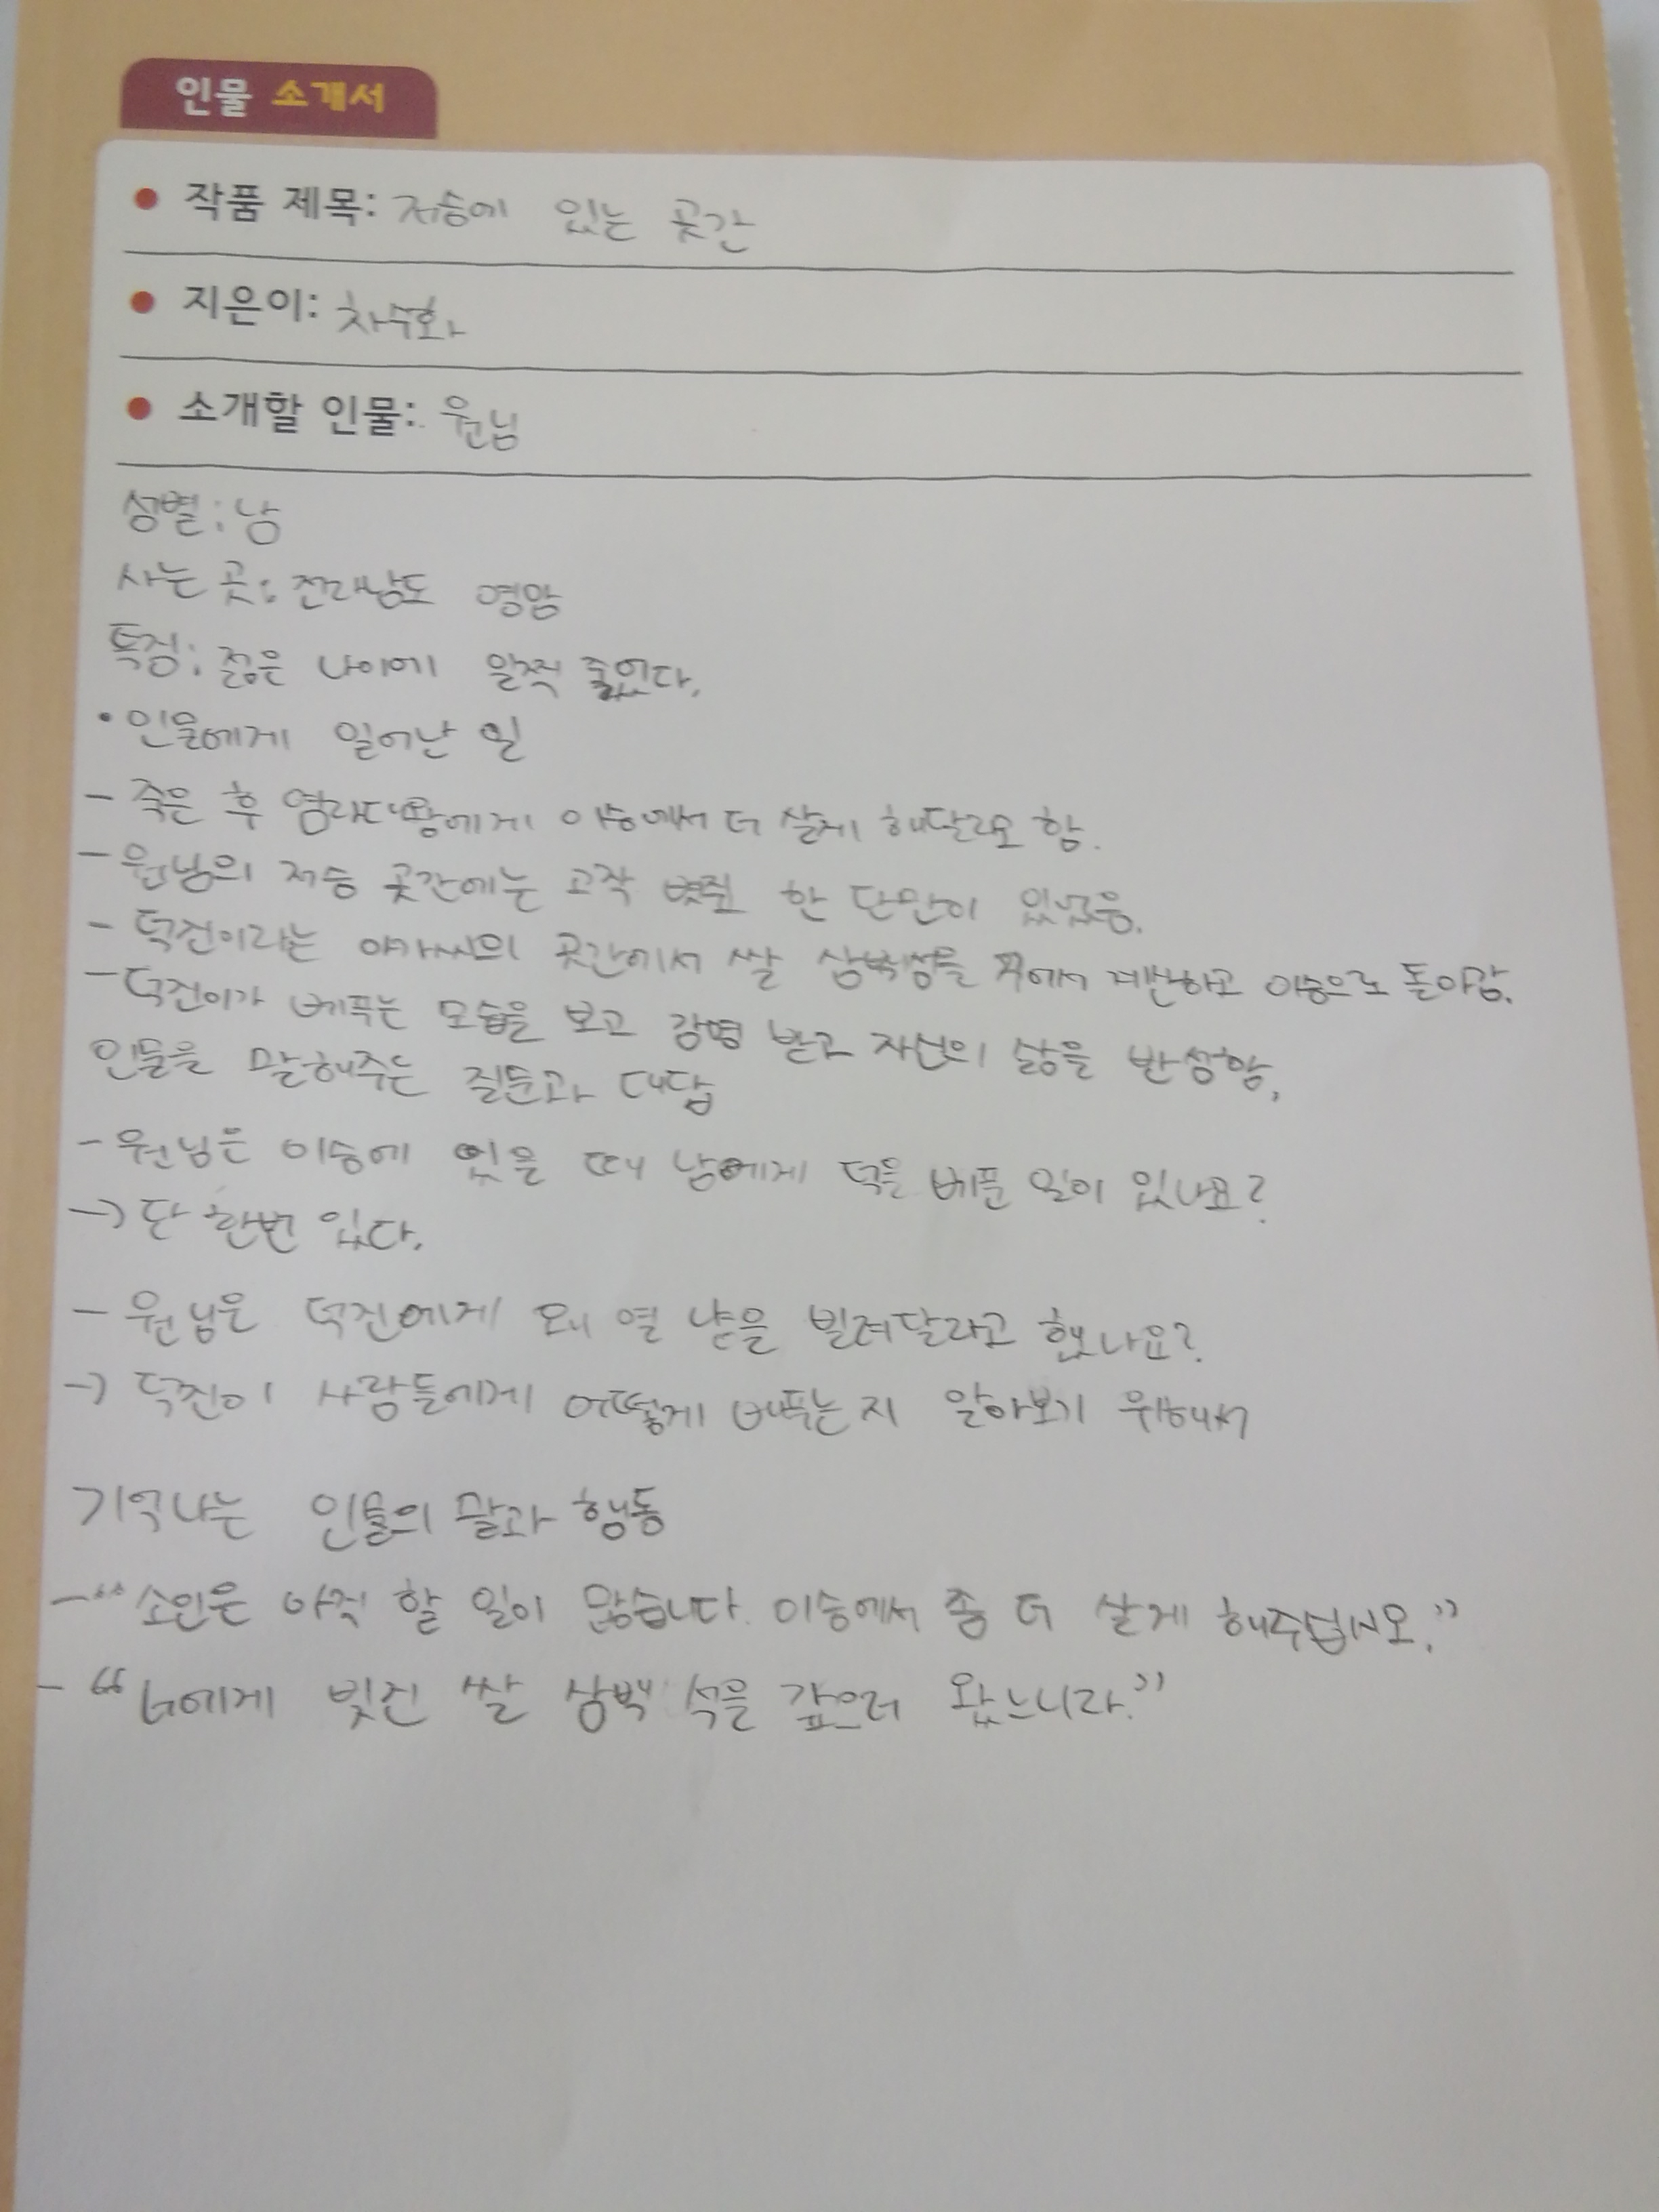 인물 소개서
작품 제목: 저승에 있는 곳간
지은이: 차수화
소개할 인물: 원님
성별: 남
사는 곳: 전라남도 영암
특징: 젊은 나이에 일찍 죽었다.
• 인물에게 일어난 일
- 죽은 후 염라대왕에게 이승에서 더 살게 해달라고 함.
- 원님의 저승 곳간에는 고작 볏짚 한 단만이 있었음.
- 덕진이라는 아가씨의 곳간에서 쌀 삼백석을 계산하고 이승으로 돌아감.
- 덕진이가 베푸는 모습을 보고 감명 받고 자신의 삶을 반성함.
인물을 말해주는 질문과 대답
- 원님은 이승에 있을 때 남에게 덕을 베푼 일이 있나요?
→ 단 한번 있다.
- 원님은 덕진에게 왜 열 냥을 빌려달라고 했나요?
→ 덕진이 사람들에게 어떻게 베푸는지 알아보기 위해서
기억나는 인물의 말과 행동
- "소인은 아직 할 일이 많습니다. 이승에서 좀 더 살게 해주십시오."
- "너에게 빚진 쌀 삼백 석을 갚으러 왔느니라."